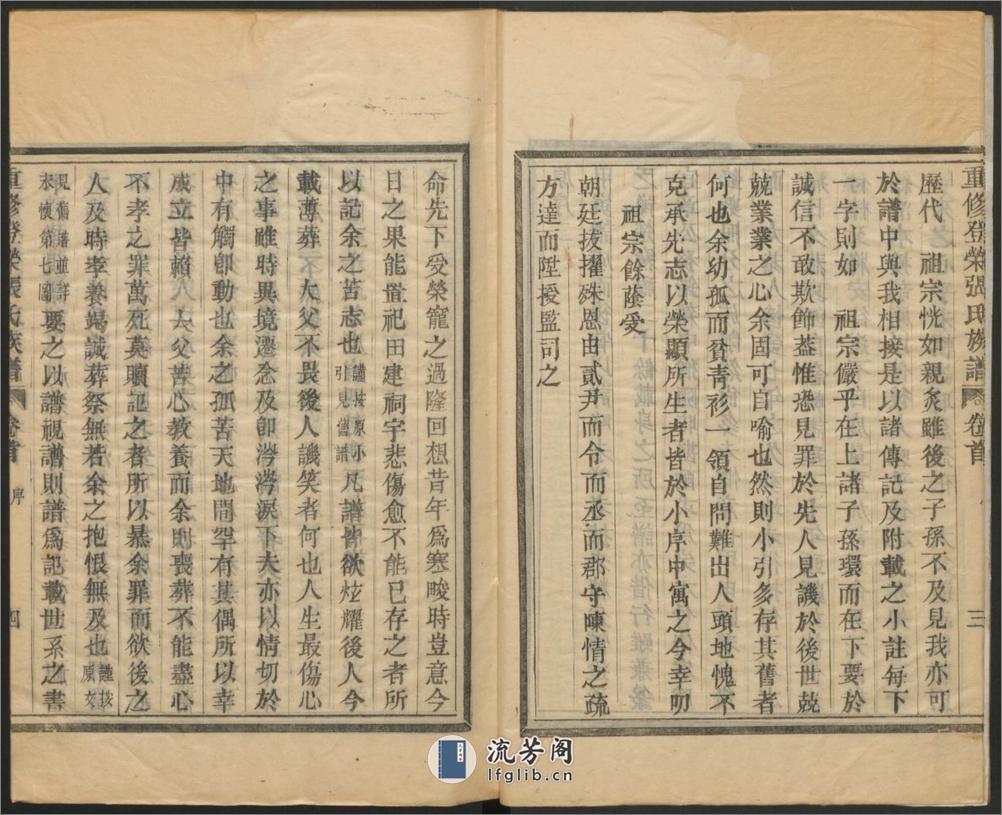 重修登榮張氏族譜 卷首 三
歷代 祖宗恍如親炙雖後之子孫不及見我亦可
於譜中與我相接是以諸傳記及附載之小註每下
一字則如 祖宗儼乎在上諸子孫環而在下要於
誠信不敢欺飾蓋惟恐見罪於先人見譏於後世兢
兢業業之心余固可自喻也然則小引多存其舊者
何也余幼孤而貧青衫一領自問難出人頭地愧不
克承先志以榮顯所生者皆於小序中寓之今幸叨
祖宗餘蔭受
朝廷拔擢殊恩由貳尹而令而丞而郡守陳情之疏
方達而陞授監司之
命先下受榮寵之過隆回想昔年爲寒畯時豈意今
日之果能置祀田建祠宇悲傷愈不能已存之者所
以記余之苦志也謹按原小引見舊譜凡譜皆欲炫耀後人今
載薄葬 大父不畏後人譏笑者何也人生最傷心
之事雖時異境遷念及卽涔涔淚下夫亦以情切於
中有觸卽動也余之孤苦天地間罕有其偶所以幸
成立皆賴 大父苦心教養而余則喪葬不能盡心
不孝之罪萬死莫贖記之者所以暴余罪而欲後之
人及時孝養竭誠葬祭無若余之抱恨無及也謹按原文
見舊譜並詳永懷第七圖要之以譜視譜則譜爲記載世系之書
重修登榮張氏族譜 卷首 序 四
流芳阁
lfglib.cn